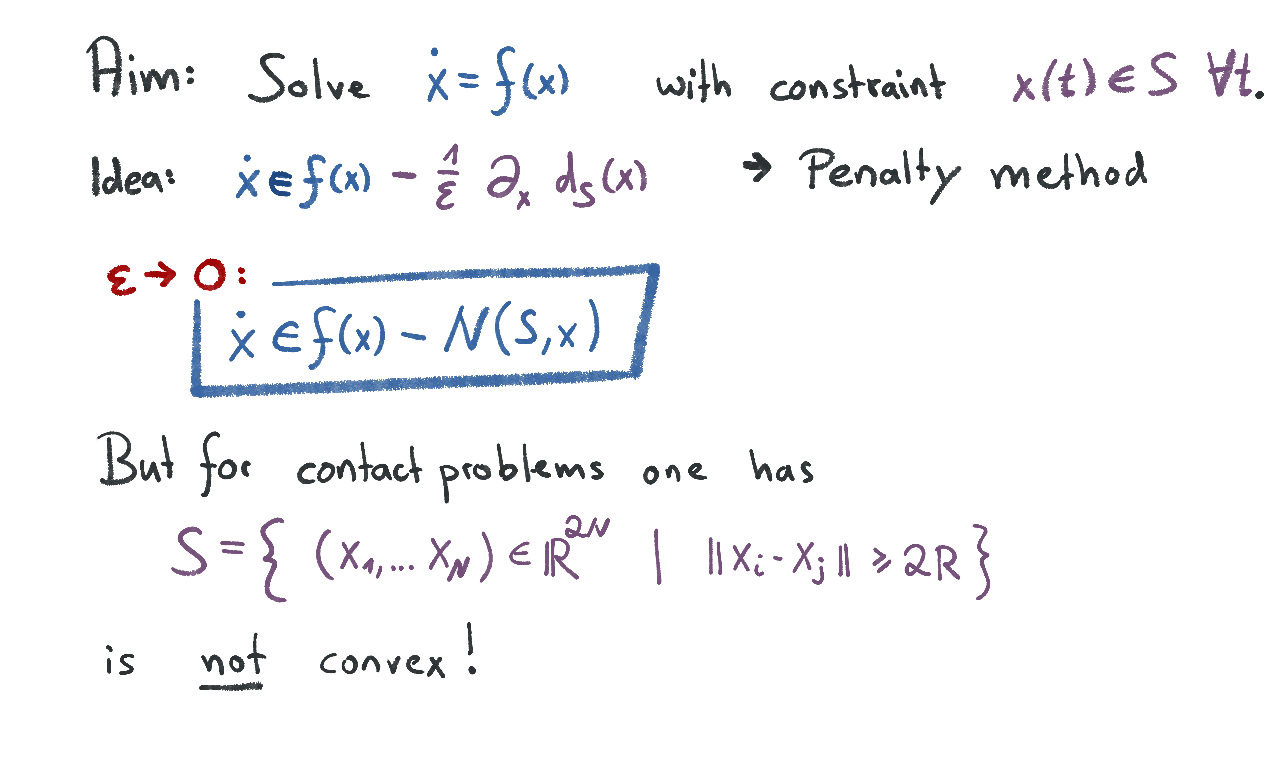 Aim: Solve ẋ = f(x) with constraint x(t) ∈ S ∀t.
Idea: ẋ ∈ f(x) - 1/ε ∂ₓ d_S(x) → Penalty method
ε → 0:
ẋ ∈ f(x) - N(S,x)
But for contact problems one has
S = { (x₁,... x_N) ∈ ℝ^2N | ||x_i - x_j|| ⩾ 2R }
is not convex!